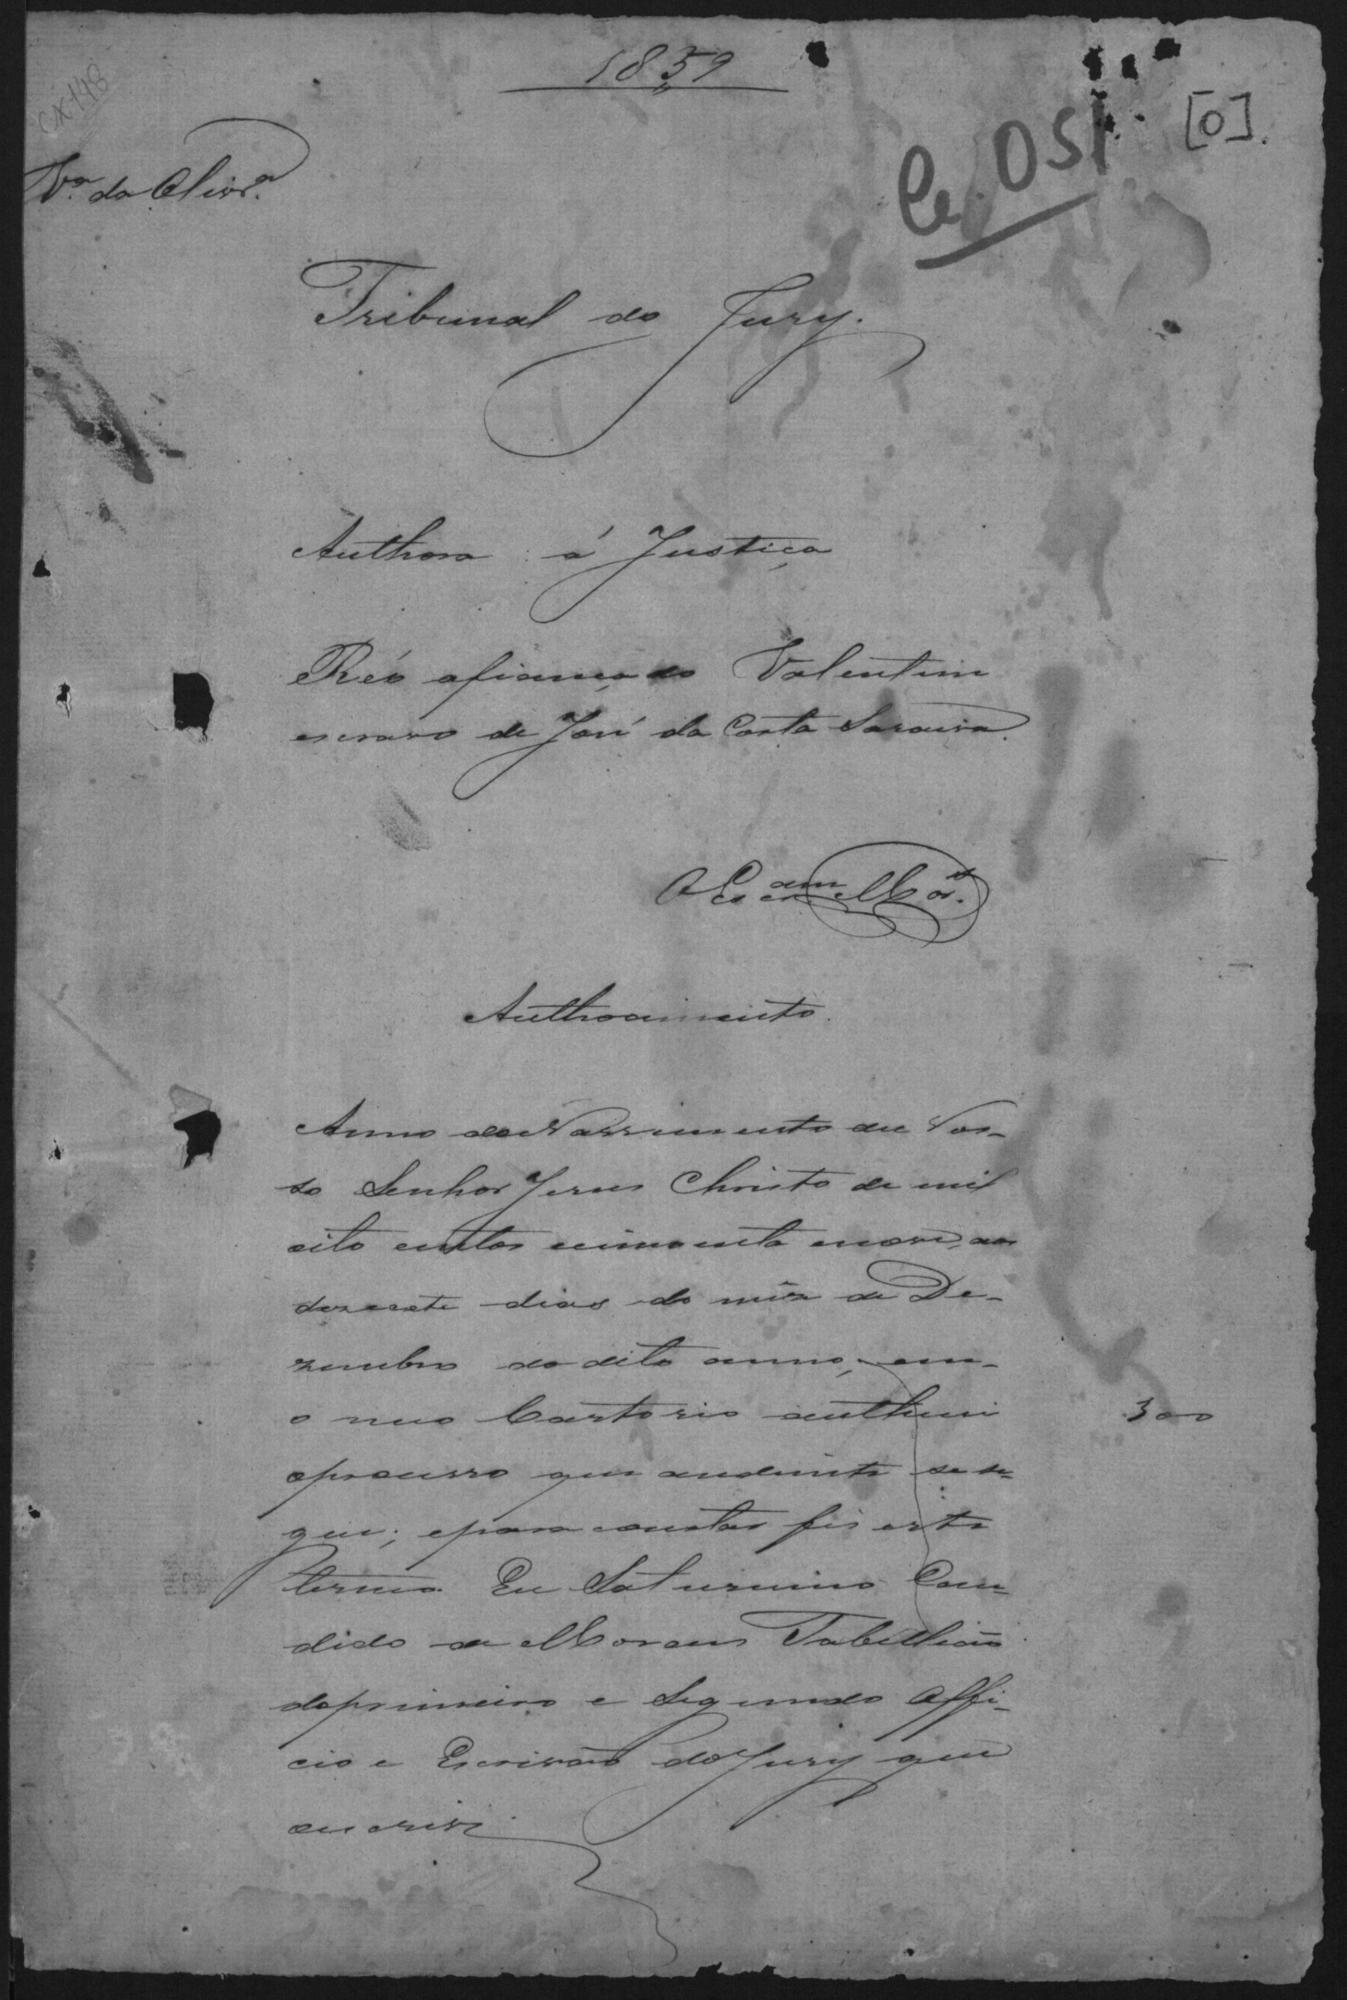 1859
CX 148
[0]
Ce. 051
Vª da Olivrª
Tribunal do Jury.
Authora á Justiça
Réo afiançado Valentim
escravo de José da Costa Saraiva.
O Escram Mor.es
Authoamento.
Anno do Nassimento de Nos-
so Senhor Jesus Christo de mil
oito centos cincoenta nove, aos
dezecete dias do mêz de De-
zembro do dito anno, em-
o meo Cartorio authuei
oprocesso que andiente se se-
gue; epara constar fis este
termo. Eu Saturnino Can-
dido de Moraes Tabellião
doprimeiro e Segundo Offi-
cio e Escrivão do Jury que
escrivi.
300